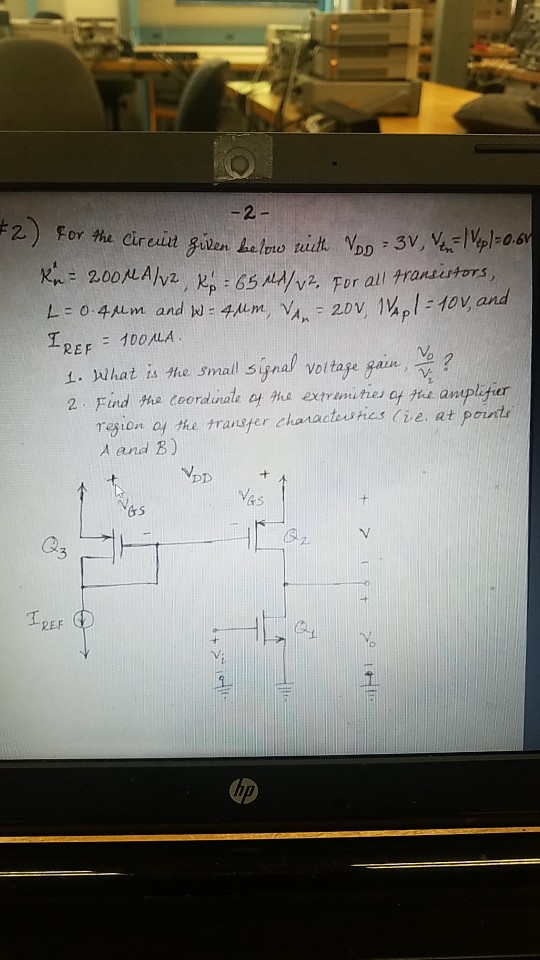 -2-
#2) For the circuit given below with VDD = 3V, Vtn = |Vtp| = 0.6V
K'n = 200 MA/V2, K'p = 65 MA/V2. For all transistors,
L = 0.4 Mm and W = 4 Mm, VAn = 20V, |VAp| = 10V, and
IREF = 100 MA.
1. What is the small signal voltage gain, Vo/Vi ?
2. Find the coordinate of the extremities of the amplifier
region of the transfer characteristics (i.e. at points
A and B)
+ VDD +
VGS VGS +
- - V
Q3 Q2 -
+
IREF Q1
+ Vo
Vi
- -
hp